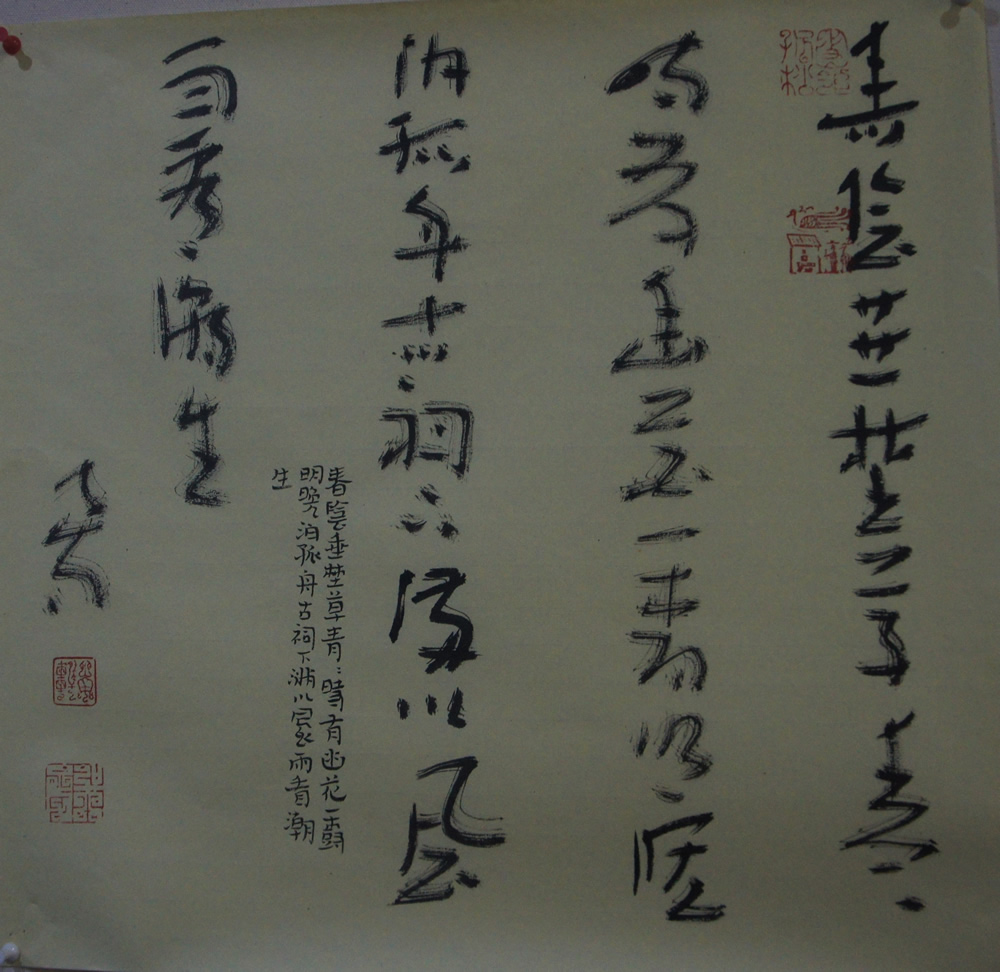 春陰垂埜草青〻
時有幽花一樹明晚
泊孤舟古祠下滿川風
雨看潮生
春陰垂埜草青〻時有幽花一樹
明晚泊孤舟古祠下滿川風雨看潮
生